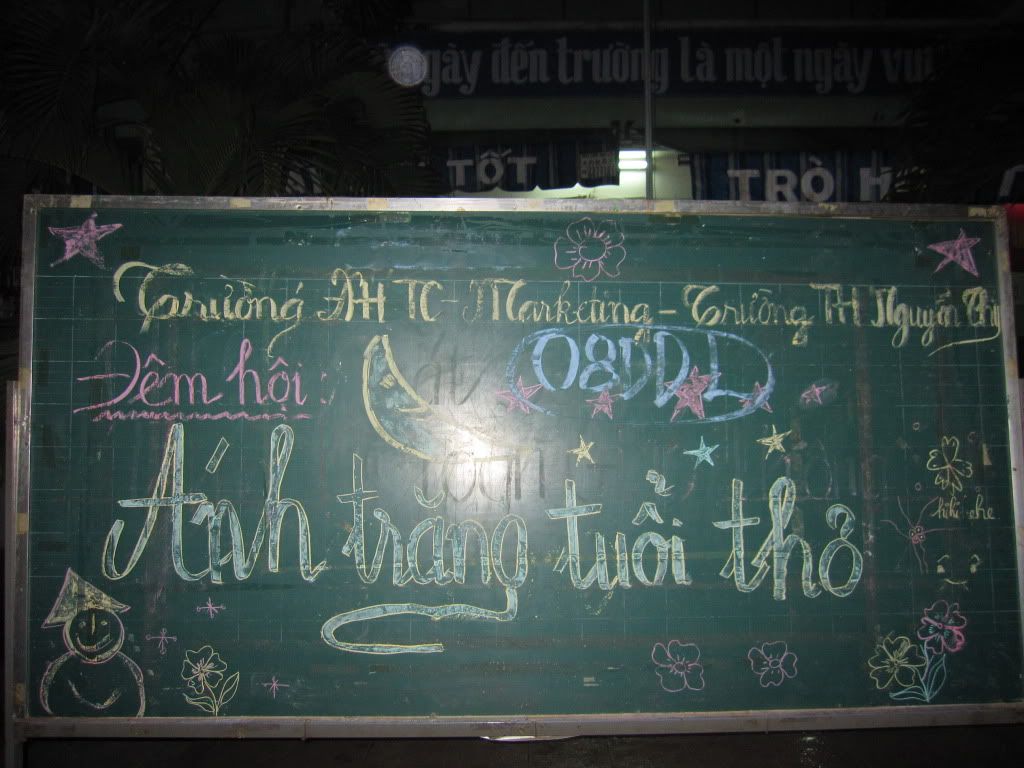 gày đến trường là một ngày vui
TỐT
TRÒ H
Trường ĐH TC - Marketing - Trường TH Nguyễn Thị
Đêm hội:
08DDL
Ánh trăng tuổi thơ
hihi hehe